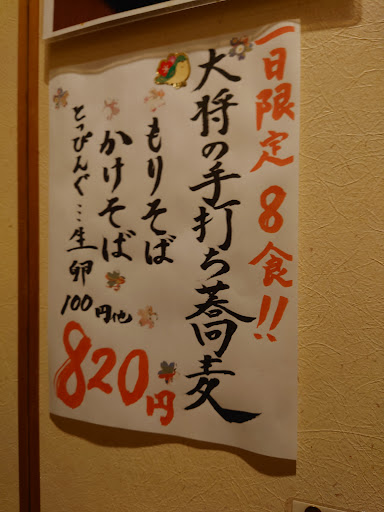 一日限定8食!!
大将の手打ち蕎麦
もりそば
かけそば
とっぴんぐ…生卵100円他
820円